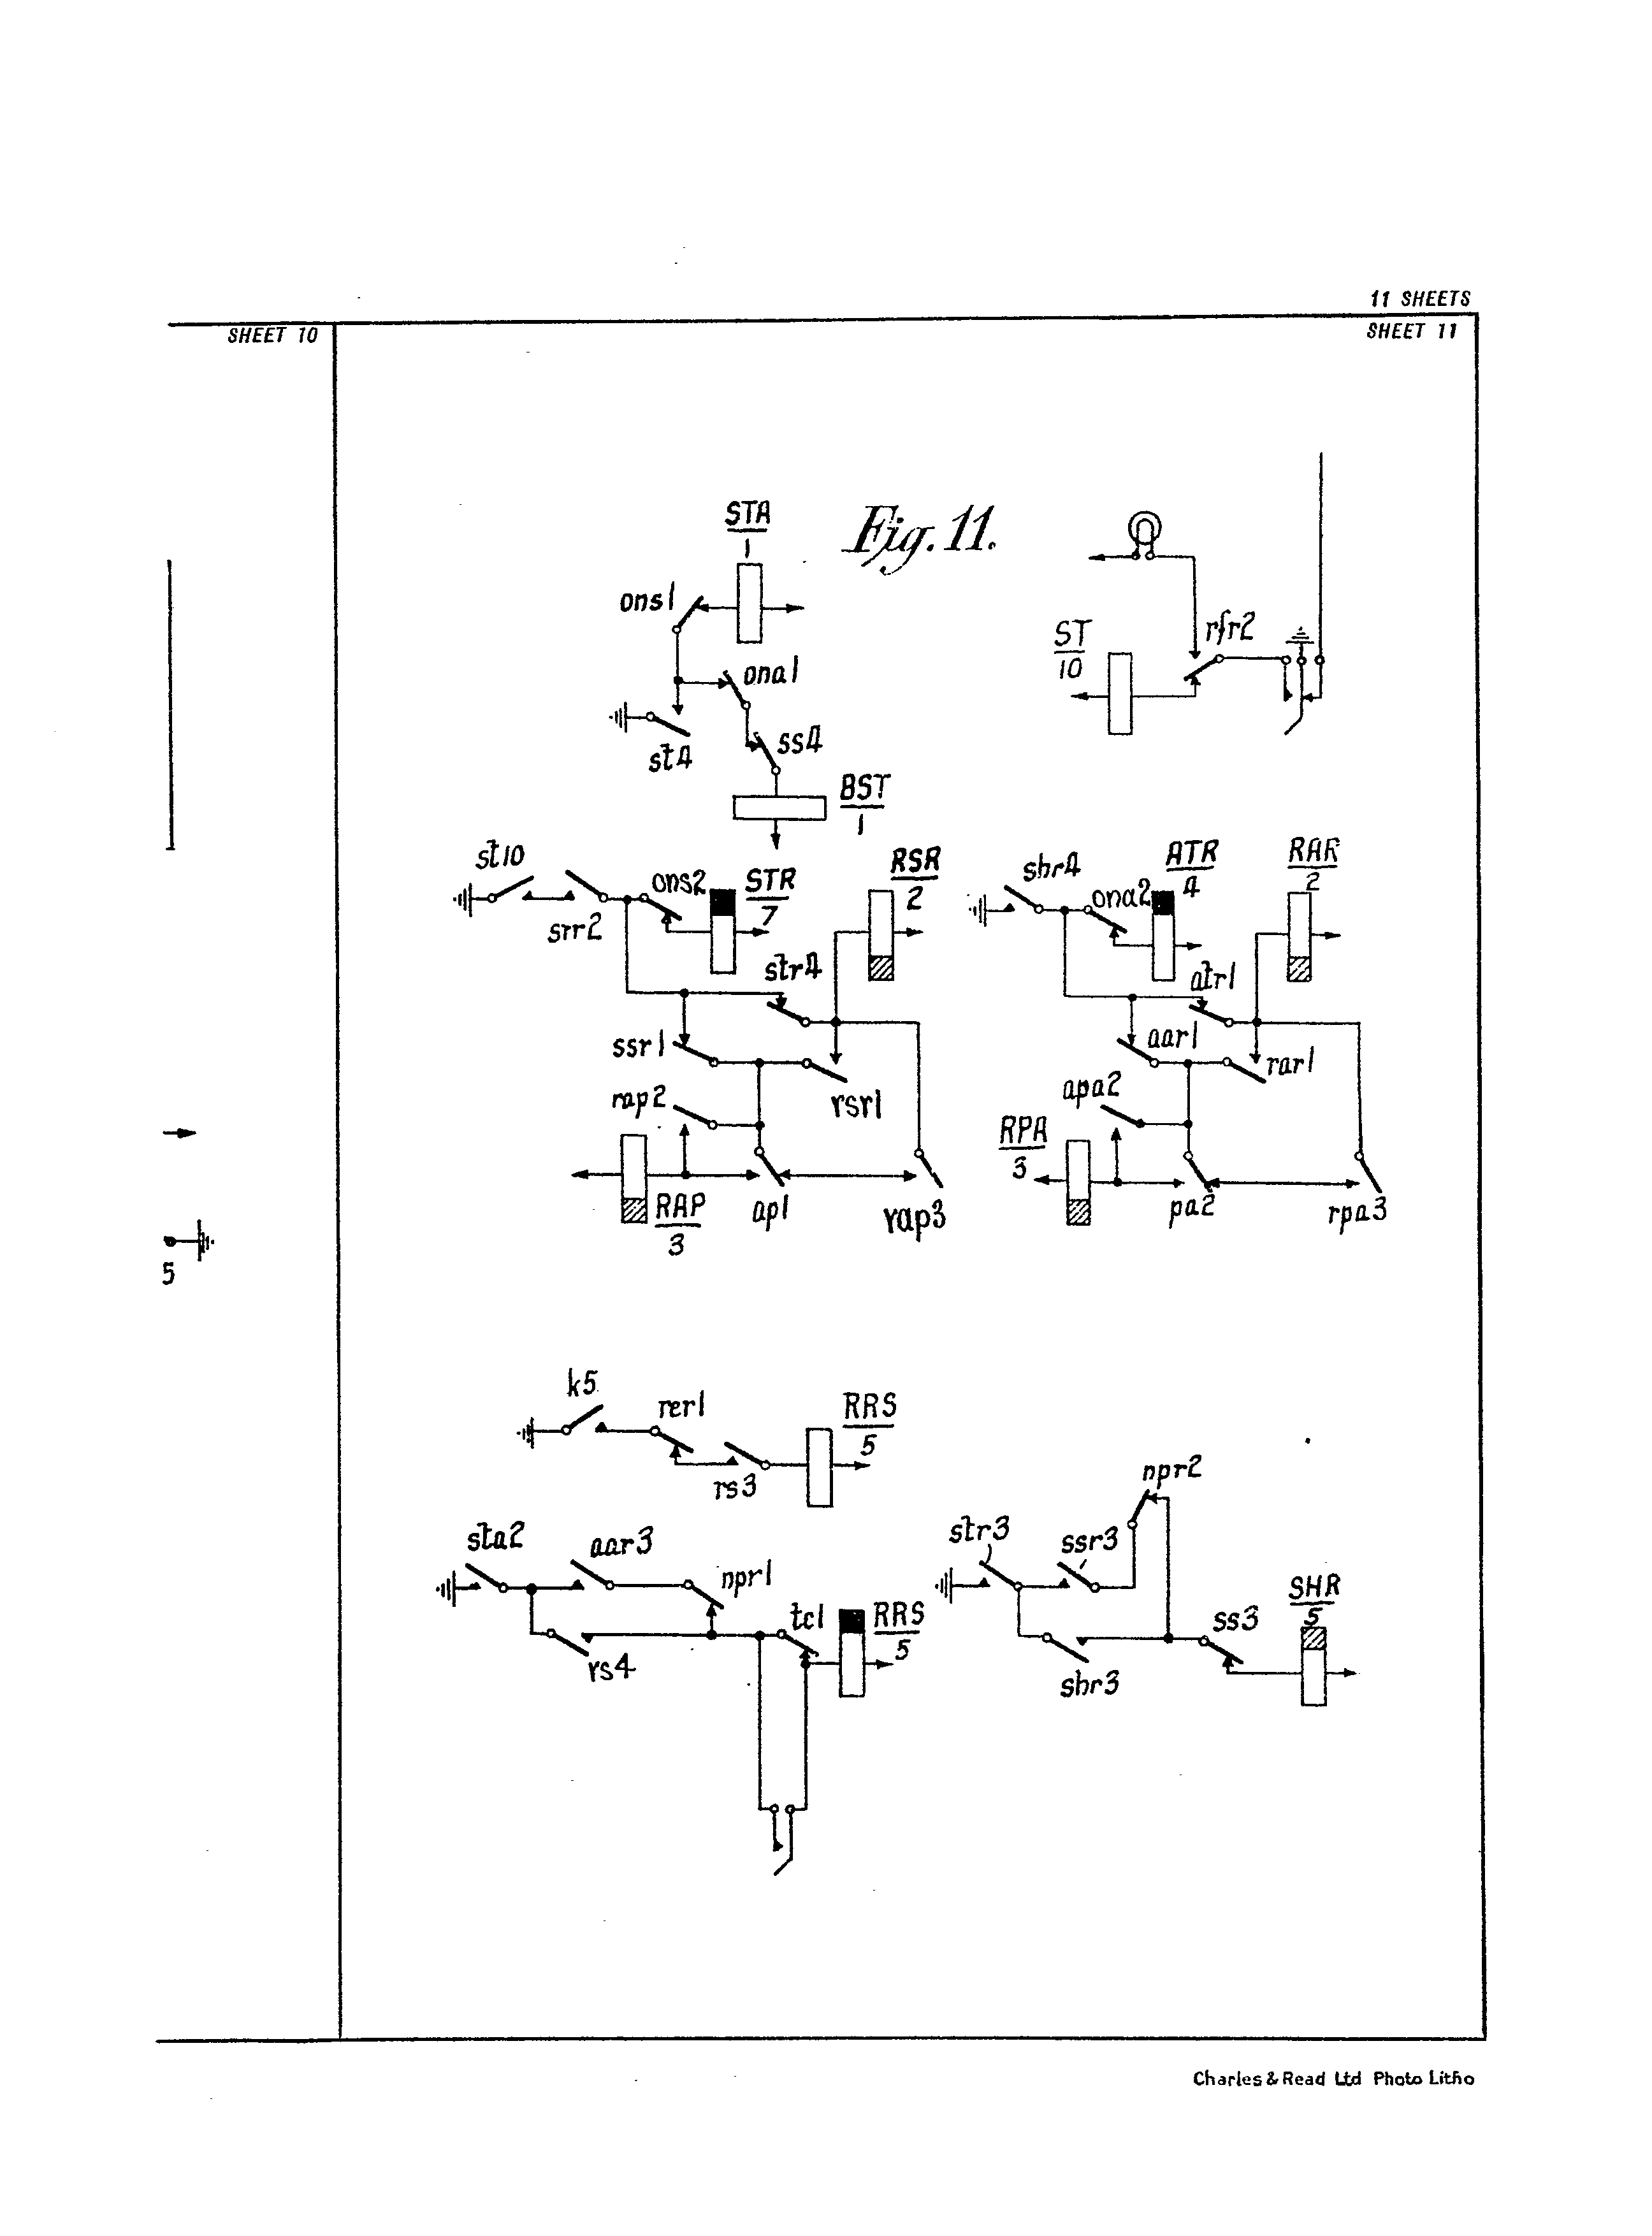 11 SHEETS
SHEET 10
SHEET 11
Fig. 11.
STA
1
ons1
ona1
st4
ss4
BST
1
rfr2
ST
10
st10
srr2
ons2
STR
7
RSR
2
str4
ssr1
rap2
rsr1
RAP
3
ap1
rap3
shr4
ona2
ATR
4
RAR
2
atr1
aar1
apa2
rar1
RPA
3
pa2
rpa3
5
k5
rer1
rs3
RRS
5
sta2
aar3
npr1
tc1
RRS
5
rs4
npr2
str3
ssr3
shr3
ss3
SHR
5
Charles & Read Ltd Photo Litho